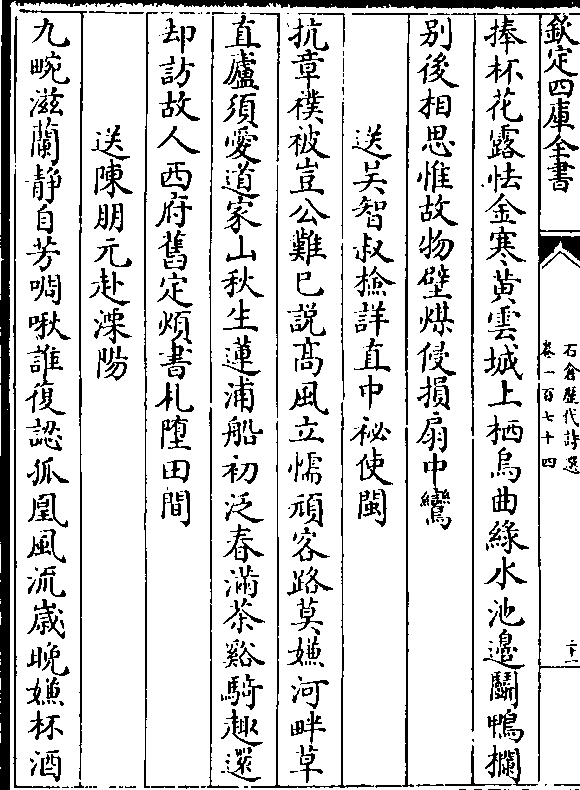 欽定四庫全書
石倉歷代詩選
卷一百七十四
二十二
捧杯花露怯金寒黄雲城上栖烏曲綠水池邉鬭鴨欄
别後相思惟故物壁煤侵損扇中鸞
送吴智叔檢詳直中祕使閩
抗章襆被豈公難已説髙風立懦頑客路莫嫌河畔草
直廬須愛道家山秋生蓮浦船初泛春滿茶谿騎趣還
却訪故人西府舊定煩書札墮田間
送陳朋元赴溧陽
九畹滋蘭静自芳啁啾誰復認孤凰風流嵗晩嫌杯酒